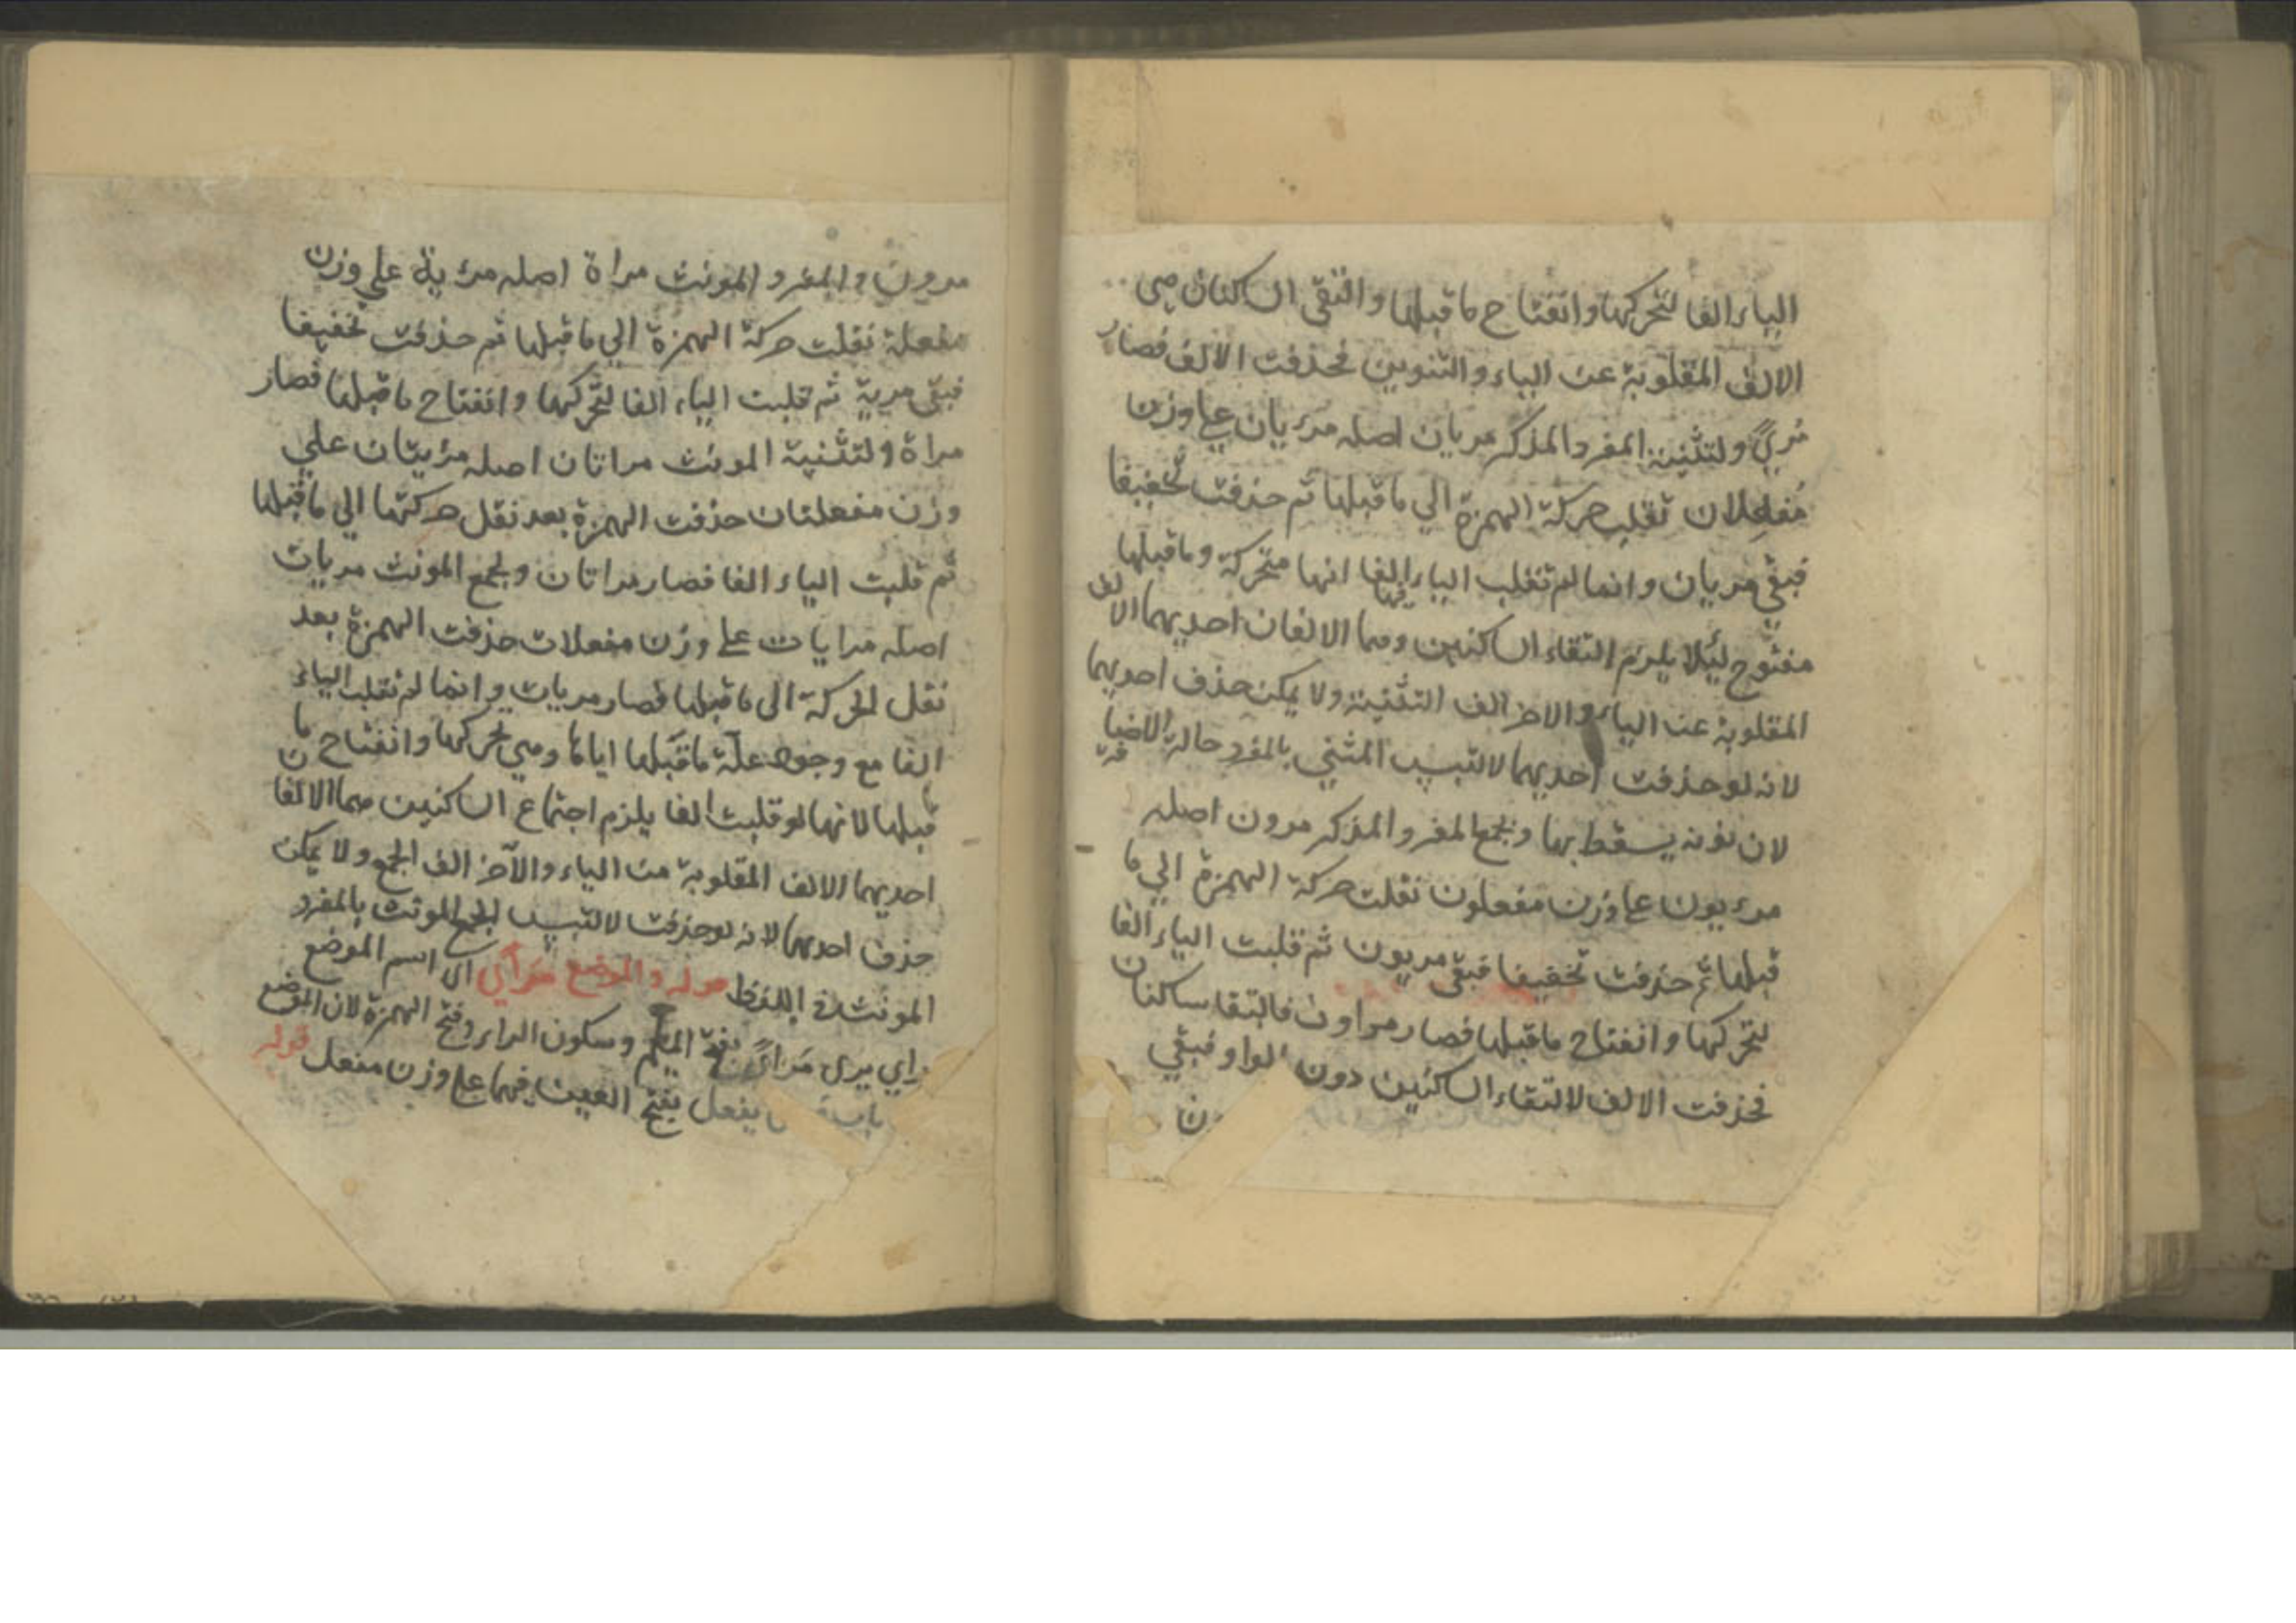 الياء الفا لتحركها وانفتاح ما قبلها والتقى الساكنان هى
الالف المقلوبة عن الياء والتنوين فحذفت الالف فصار
مُريً ولتثنية المفرد المذكر مريان اصله مرءيان علي وزن
مُفعلان نقلب حركة الهمزة الي ما قبلها ثم حذفت تخفيفا
فبقي مريان وانما لم تقلب الياء الفا انها متحركة وما قبلها
مفتوح ليُلا يلزم التقاء الساكنين وهما الالفان احديهما الالف
المقلوبة عن الياء والاخر الف التثنية ولا يمكن حذف احديهما
لانه لو حذفت احديهما لالتبس المثني بالمفرد حالة الاضافة
لان نونه يسقط بها ولجمع المفرد المذكر مرون اصله
مرءيون علي وزن مفعلون نقلت حركة الهمزة الي ما
قبلها ثم حذفت تخفيفا فبقى مريون ثم قلبت الياء الفا
لتحركها وانفتاح ما قبلها فصار مراون فالتقا ساكنان
فحذفت الالف لالتقاء الساكنين دون الواو فبقي
مرون والمفرد المونث مراة اصله مرءية علي وزن
مفعلة نقلت حركة الهمزة الي ما قبلها ثم حذفت تخفيفا
فبقى مرية ثم قلبت الياء الفا لتحركها وانفتاح ما قبلها فصار
مراة ولتثنية المونث مراتان اصله مرءيتان علي
وزن مفعلتان حذفت الهمزة بعد نقل حركتها الي ما قبلها
ثم قلبت الياء الفا فصار مراتان ولجمع المونث مريات
اصله مرايات علي وزن مفعلات حذفت الهمزة بعد
نقل الحركة الى ما قبلها فصار مريات وانما لم تقلب الياء
الفا مع وجود علة ما قبلها اياها وهي تحركها وانفتاح ما
قبلها لانها لو قلبت الفا يلزم اجتماع الساكنين هما الالفان
احديهما الالف المقلوبة من الياء والآخر الف الجمع ولا يمكن
حذف احديهما لانه لو حذفت لالتبس الجمع المونث بالمفرد
المونث في اللفظ قوله والموضع مَرآي اى اسم الموضع
راي يرى مَرايً بفتح الميم وسكون الراء وفتح الهمزة لان الموضع
باب يفعل بفتح العين فيهما علي وزن مفعل قوله